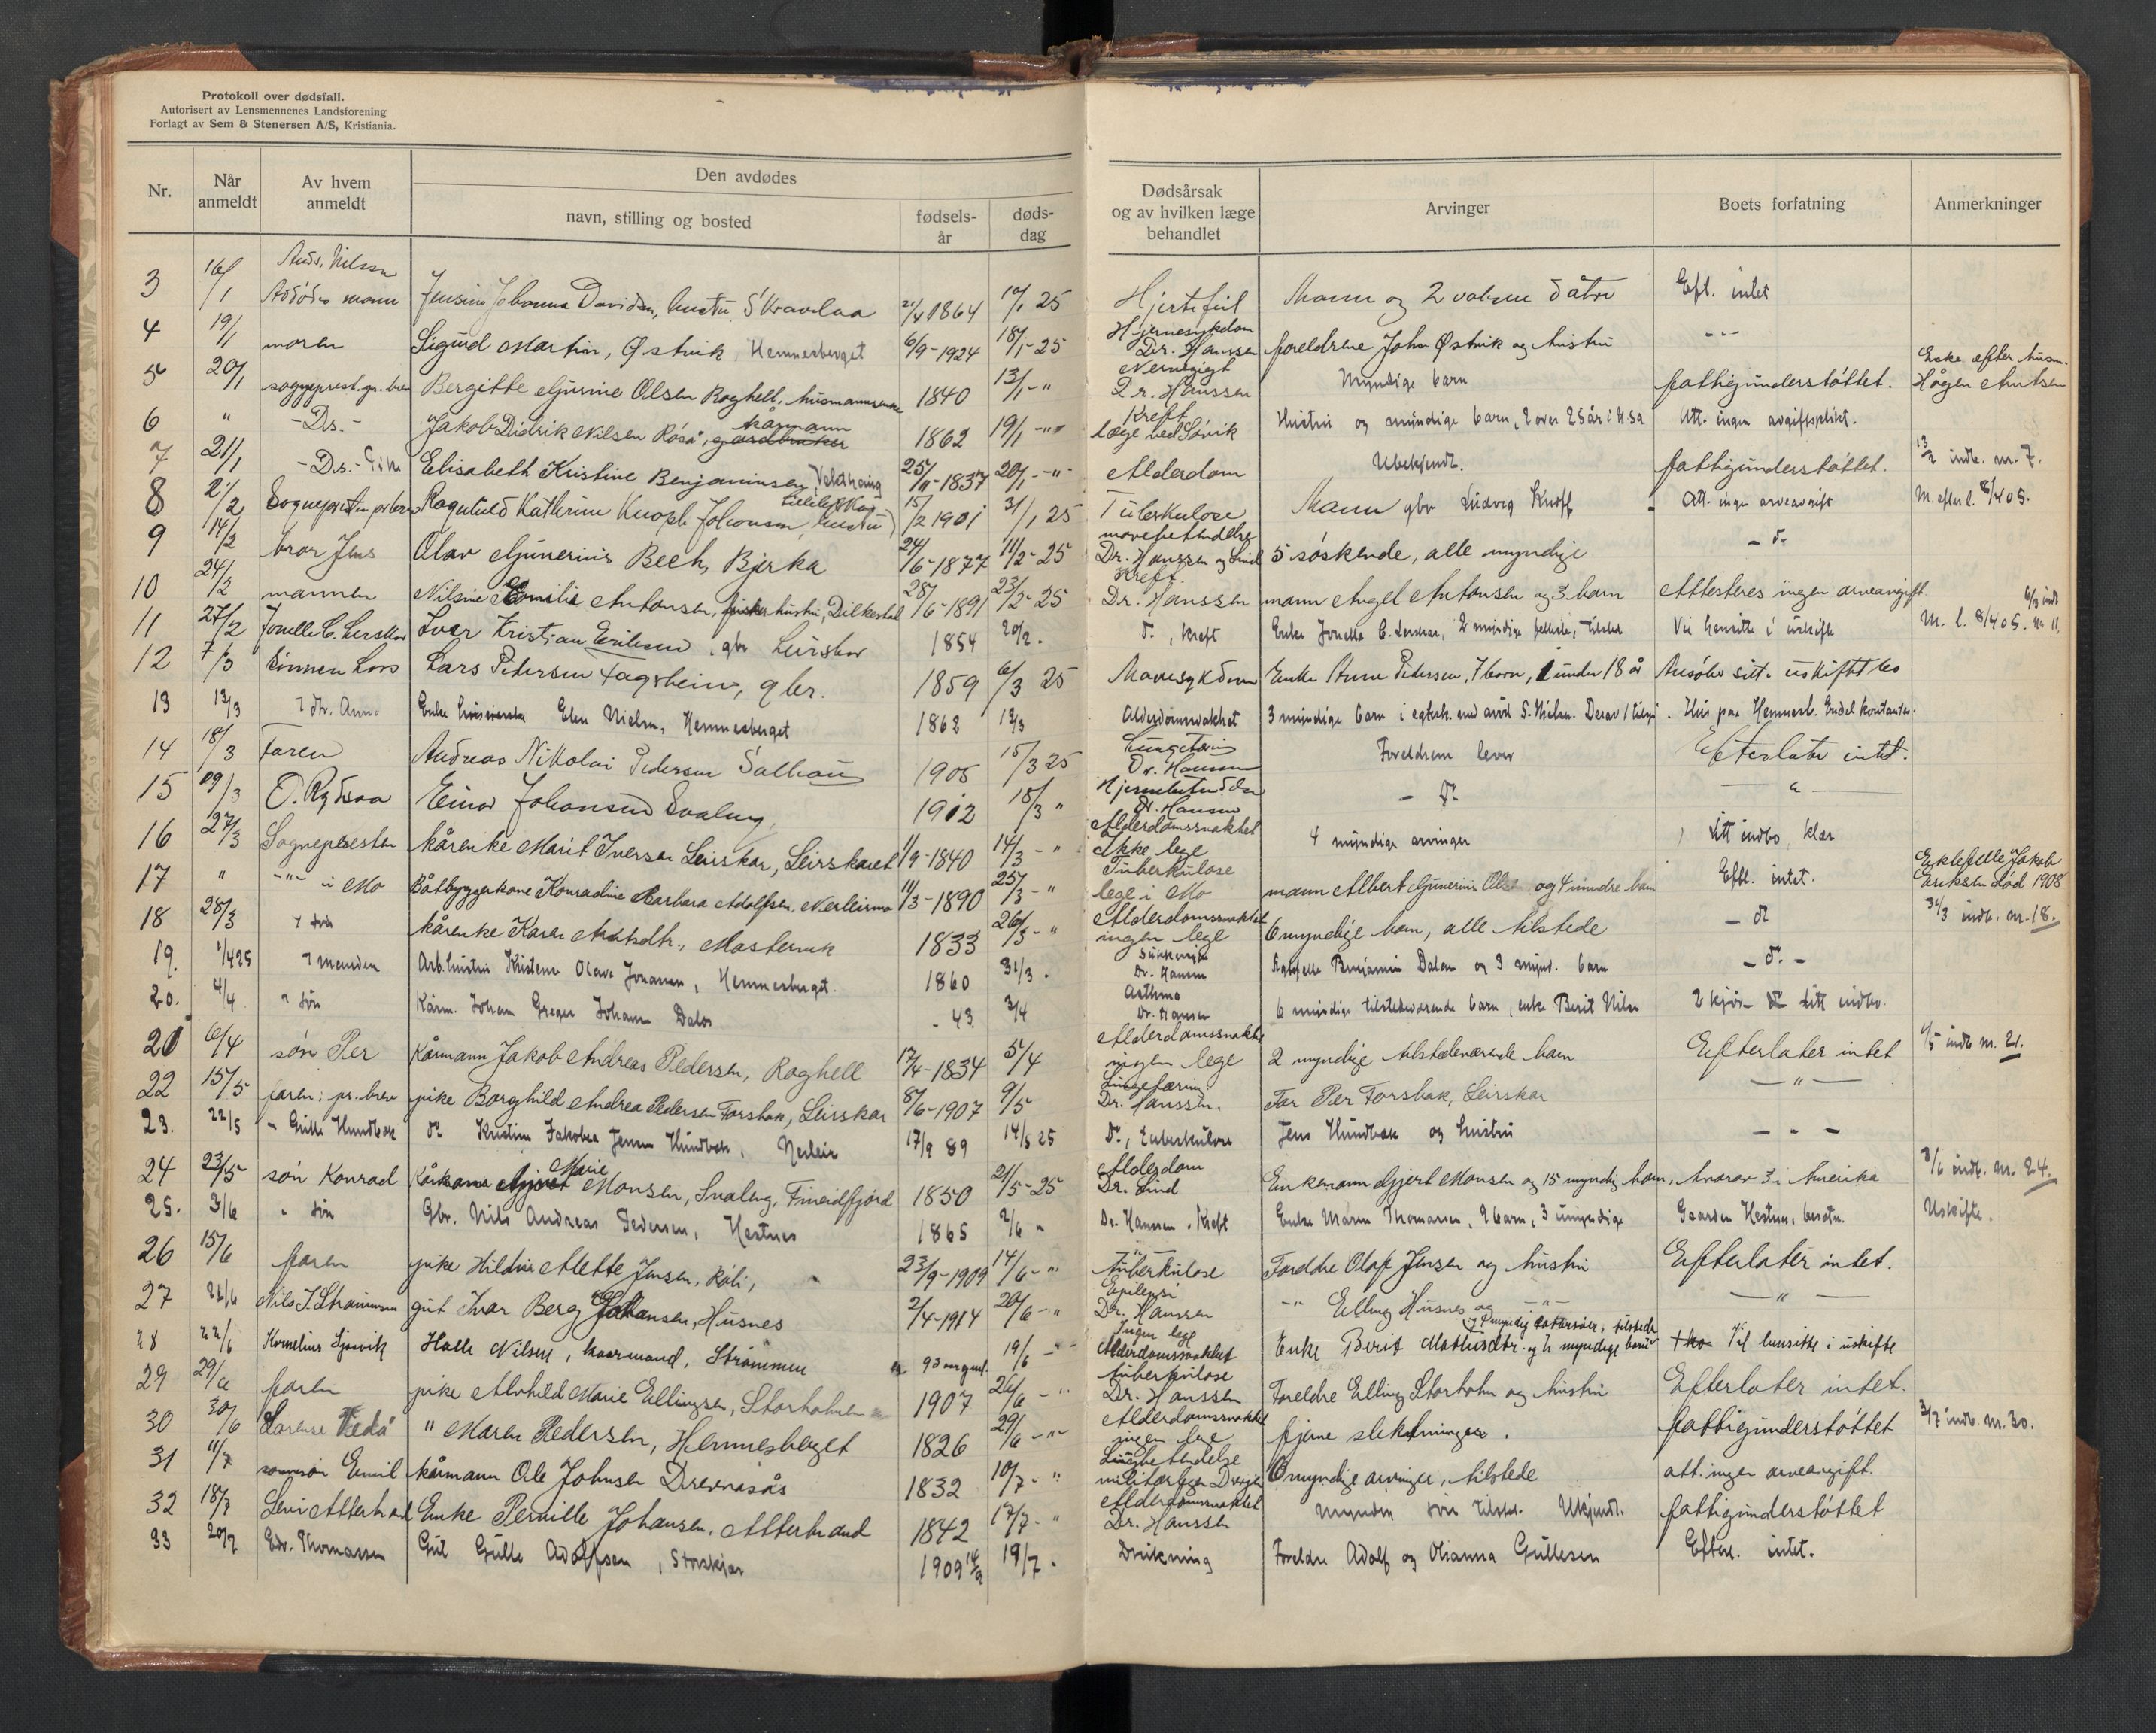 Protokoll over dødsfall.
Autorisert av Lensmennenes Landsforening
Forlagt av Sem & Stenersen A/S, Kristiania.
Nr. Når anmeldt Av hvem anmeldt Den avdødes navn, stilling og bosted fødselsår dødsdag Dødsårsak og av hvilken læge behandlet Arvinger Boets forfatning Anmerkninger
3 16/1 Ands. Nilsen Jensine Johanna Davidsen, hustru 21/4 1864 10/1 25 Hjertefeil Mann og 2 voksne døtre Efl. intet
4 19/1 moren Sigurd Martin, Østvik, Hemnesberget 6/9-1924 18/1-25 Hjernesykdom Dr. Hanssen foreldrene John Østvik og hustru -"-
5 20/1 sogneprest. pr. brev Bergitte Gjurine Olsen Roghell, husmannsenke 1840 13/1-" Nervegigt Dr. Hanssen Myndige barn fattigunderstøttet. Enke efter husm. Hågen Antsen
6 " -Ds.- Jakob Didrik Nilsen Røså, gårdbruker kårmann 1862 19/1-"" Kreft læge ved Søvik Hustru og myndige barn, 2 over 25 år i USA Att. ingen avgiftsplikt.
7 21/1 -Ds.- Elisabeth Kristine Benjaminsen, 25/11-1837 20/1-"- Alderdom Ubekjendt. fattigunderstøttet. 13/2 indb. nr. 7.
8 2/2 Sognepresten pr brev Ragnhild Kathrine Knoph Johansen, hustru 15/2 1901 31/1 25 Tuberkulose Mann gbr Ludvig Knoff Att. ingen arveavgift M. efter l. 8/4 05.
9 14/2 bror Jens Olav Gunerius Bech, Bjerka 24/6-1877 11/2-25 mavebetendelse Dr. Hanssen og Lind 5 søskende, alle myndige - do
10 24/2 mannen Nilsine Emilie Antonsen, fisker hustru, 28/6-1891 23/2-25 Kreft Dr. Hanssen mann Angel Antonsen og 3 barn Attesteres ingen arveavgift
11 27/2 Jonelle C. Lerskar Ivar Kristian Eriksen, gbr Leirskar 1854 20/2. do, kreft Enke Jonelle C. Lerskar, 2 myndige Vil hensitte i uskifte M. l. 8/4 05. 6/3 indb nr 11.
12 7/3 sønnen Lars Lars Pedersen Fagerheim, gbr. 1859 6/3 25 Mavesykdom Enke Anne Pedersen, 7 barn, 1 under 18 år Ansøker sitte uskiftet bo
13 13/3 dtr. Anna Enke Elen Nielsen, Hemnesberget 1862 12/3 Alderdomssvakhet 3 myndige barn i egtesk. med avd S. Nielsen. Derav 1 tilsted. Hus paa Hemnesb. Endel kontanter.
14 18/3 Faren Andreas Nikolai Pedersen Salhaug 1905 15/3 25 Lungetæring Dr. Hanssen Foreldrene lever Efterlater intet.
15 19/3 O. Rydsaa Einar Johansen Svaleng 1912 18/3 " Dr. Hansen - do -"-
16 27/3 Sognepresten kårenke Marit Iversen Leirskar, Leirskaret 11/9-1840 14/3-" Alderdomssvakhet Ikke lege 4 myndige arvinger Litt indbo, klær
17 " -"- i Mo Båtbyggerkone Konradine Barbara Adolfsen, Nerleirmo 11/3-1890 25/3-" Tuberkulose lege i Mo mann Albert Gunerius Olsen og 4 mindre barn Eftl. intet. Ektefelle Jakob Eriksen død 1908
18 28/3 søn kårenke Karen Antsdtr., Mastervik 1833 26/3-" Alderdomssvakhet ingen lege 6 myndige barn, alle tilstede - do 31/3 indb. nr. 18.
19. 1/4 25 Manden Arb. hustru Kristine Olava Jonassen, Hemnesberget. 1860 31/3. Sukkersyke Dr. Hansen Benjamin Dalen og 3 mynd. barn - do -
20. 4/4 " søn Kårm. Johan Greger Johansen Dalos - 43 3/4 Asthma Dr. Hansen 6 myndige tilstedeværende barn, enke Berit Nilsen 2 kjør do Litt indbo.
21 6/4 søn Per Kårmann Jakob Andreas Pedersen, Roghell 17/4-1834 5/4 Alderdomssvakhet ingen lege 2 myndige tilstedeværende barn Efterlater intet 4/5 indb nr. 21.
22 15/5 faren: pr. brev pike Borghild Andrea Pedersen Forsbak, Leirskar 8/6-1907 9/5 Lungetæring Dr. Hanssen. Far Per Forsbak, Leirskar -"-
23. 22/5 " Gulli Hundbak do Kristine Jakobea Jensen Hundbak, Nerleir 17/9 89 14/5 25 Do, Tuberkulose Jens Hundbak og hustru - - -
24 23/5 søn Konrad Kårkona Marie Monsen, Svaleng, Fineidfjord 1850 21/5-25 Alderdom Dr. Lind Enkemann Gjert Monsen og 15 myndig barn, hvorav 3 i Amerika 8/6 indb. nr. 24.
25. 3/6 " søn Gbr. Nils Andreas Pedersen, Hestnes 1865 2/6 " Dr. Hanssen. Kreft Enke Maren Thomassen, 9 barn, 3 umyndige Gaarden Hestnes, besetn. Uskifte.
26 15/6 faren pike Hildur Alette Jensen, Røli, 23/9-1909 14/6-" Tuberkulose Foreldre Olaf Jensen og hustru Efterlater intet.
27 22/6 Nils J. Strømmen gut Ivar Berg Johansen, Husnes 2/4-1914 20/6-" Epilepsi Dr. Hanssen -"- Elling Husnes og -"- -"-
28 22/6 Kornelius Sjøsvik Halle Nilsen, kaarmand, Strømmen 93 19/6 -" Ingen lege Alderdomssvakhet Enke Berit Mathisdtr. og 2 myndige barn Vil hensitte i uskifte
29 29/6 faren pike Alvhild Marie Ellingsen, Storholmen 1907 26/6-" tuberkulose Dr. Hanssen Foreldre Elling Storholm og hustru Efterlater intet.
30 30/6 Lorense Vedå " Maren Pedersen, Hemnesberget 1826 29/6-"- Alderdomssvakhet ingen lege fjerne slektninger. fattigunderstøttet 3/7 indb. nr. 30.
31 11/7 sønnesøn Emil kårmann Ole Johnsen Drevvasås 1832 10/7-" Lungebetendelse 6 myndige arvinger, tilstede att. ingen arveavgift.
32 18/7 Levi Alterbrand Enke Pernille Johansen, Alterbrand 1842 17/7-" Alderdomssvakhet Dr. Hanssen Myndig søn tilsted. Ukjendt. fattigunderstøttet
33 20/7 Edv. Thomassen Gut Gulle Adolfsen, Storskjær 1909 19/7. Drukning Foreldre Adolf og Olianna Gullesen Efterl. intet.